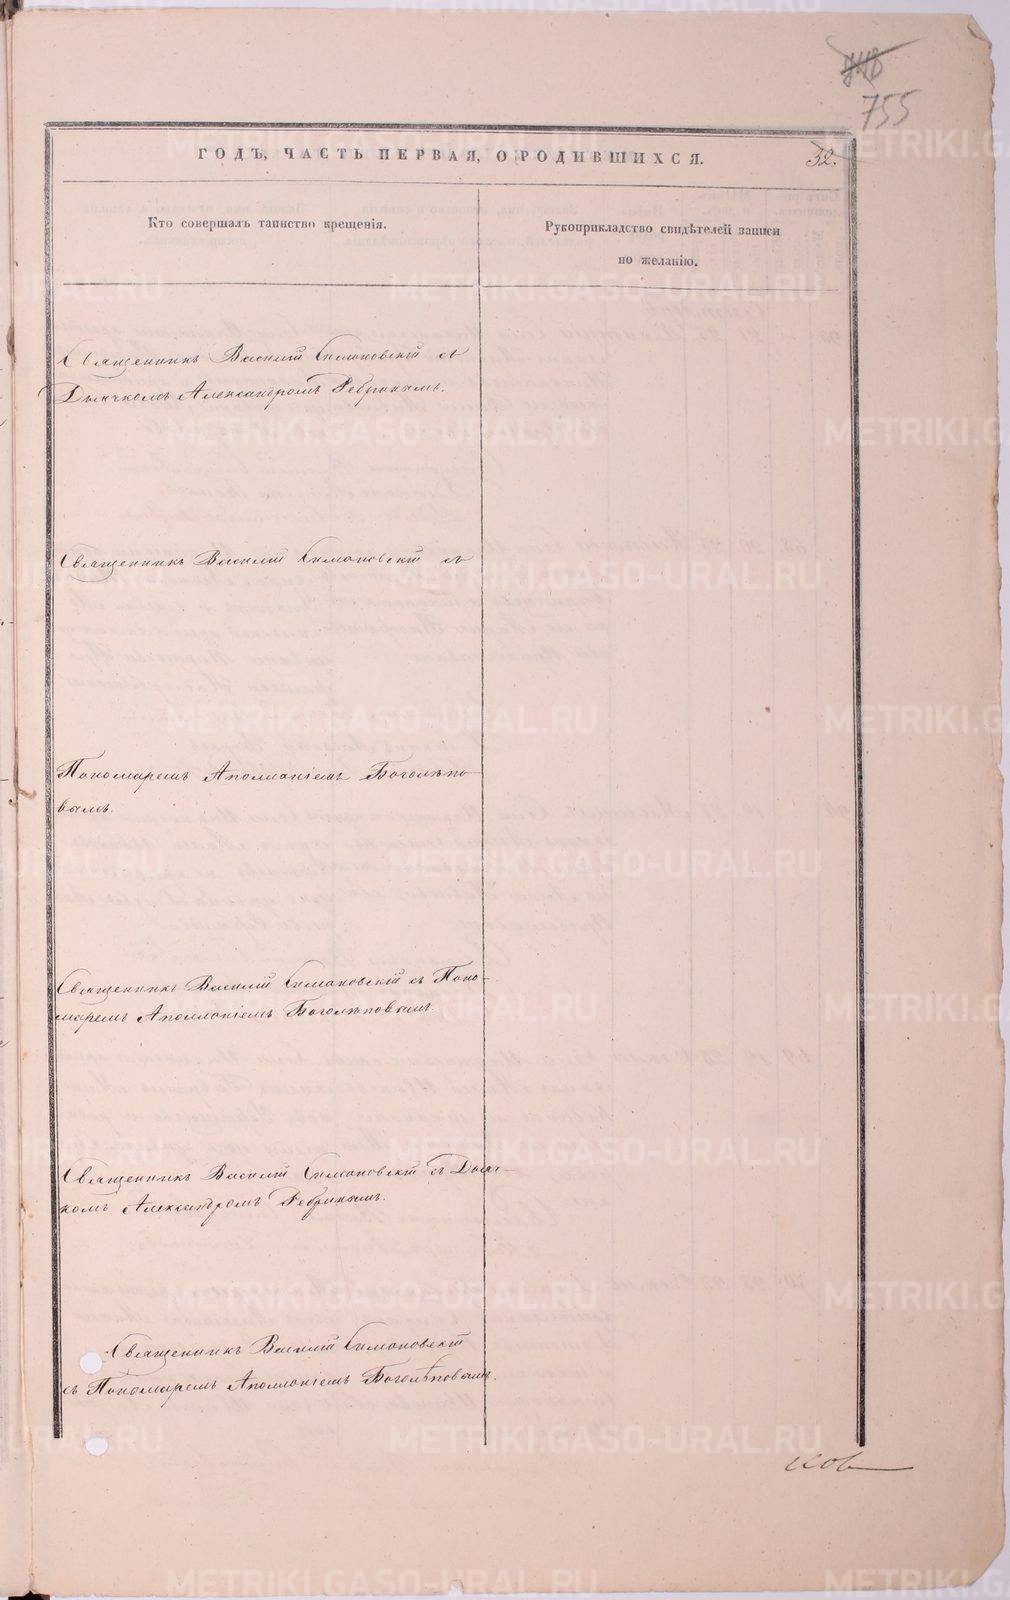 448
755
ГОДЪ, ЧАСТЬ ПЕРВАЯ, О РОДИВШИХСЯ.
32.
Кто совершалъ таинство крещенія.
Рукоприкладство свидѣтелей записи
по желанію.
Священникъ Василій Симановскій съ
Дьячкомъ Александромъ Ребринымъ.
Священникъ Василій Симановскій съ
Пономаремъ Аполлоніемъ Боголѣпо-
вымъ.
Священникъ Василій Симановскій съ Поно-
маремъ Аполлоніемъ Боголѣповымъ.
Священникъ Василій Симановскій съ Дьяч-
комъ Александромъ Ребринымъ.
Священникъ Василій Симановскій
съ Пономаремъ Аполлоніемъ Боголѣповымъ.
ков
METRIKI.GASO-URAL.RU